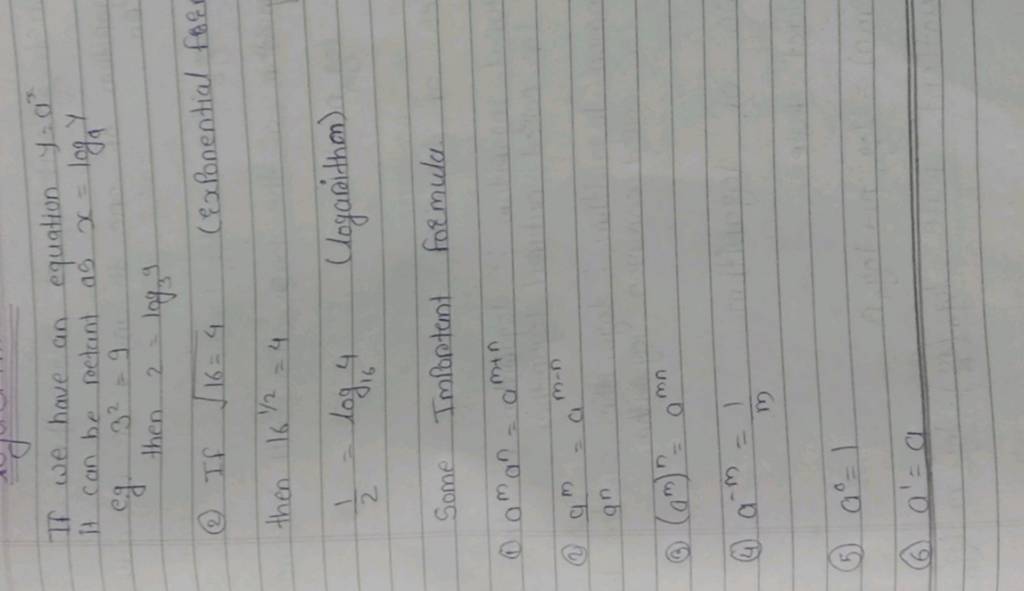 If we have an equation y = a^x
It can be retant as x = log_a y
eg 3² = 9
then 2 = log_3 9
② If √16 = 4 (Exponential
then 16^1/2 = 4
1/2 = log_16 4 (logarithm)
Some Important formula
① a^m a^n = a^m+n
② a^m/a^n = a^m-n
③ (a^m)^n = a^mn
④ a^-m = 1/m
⑤ a° = 1
⑥ a' = a